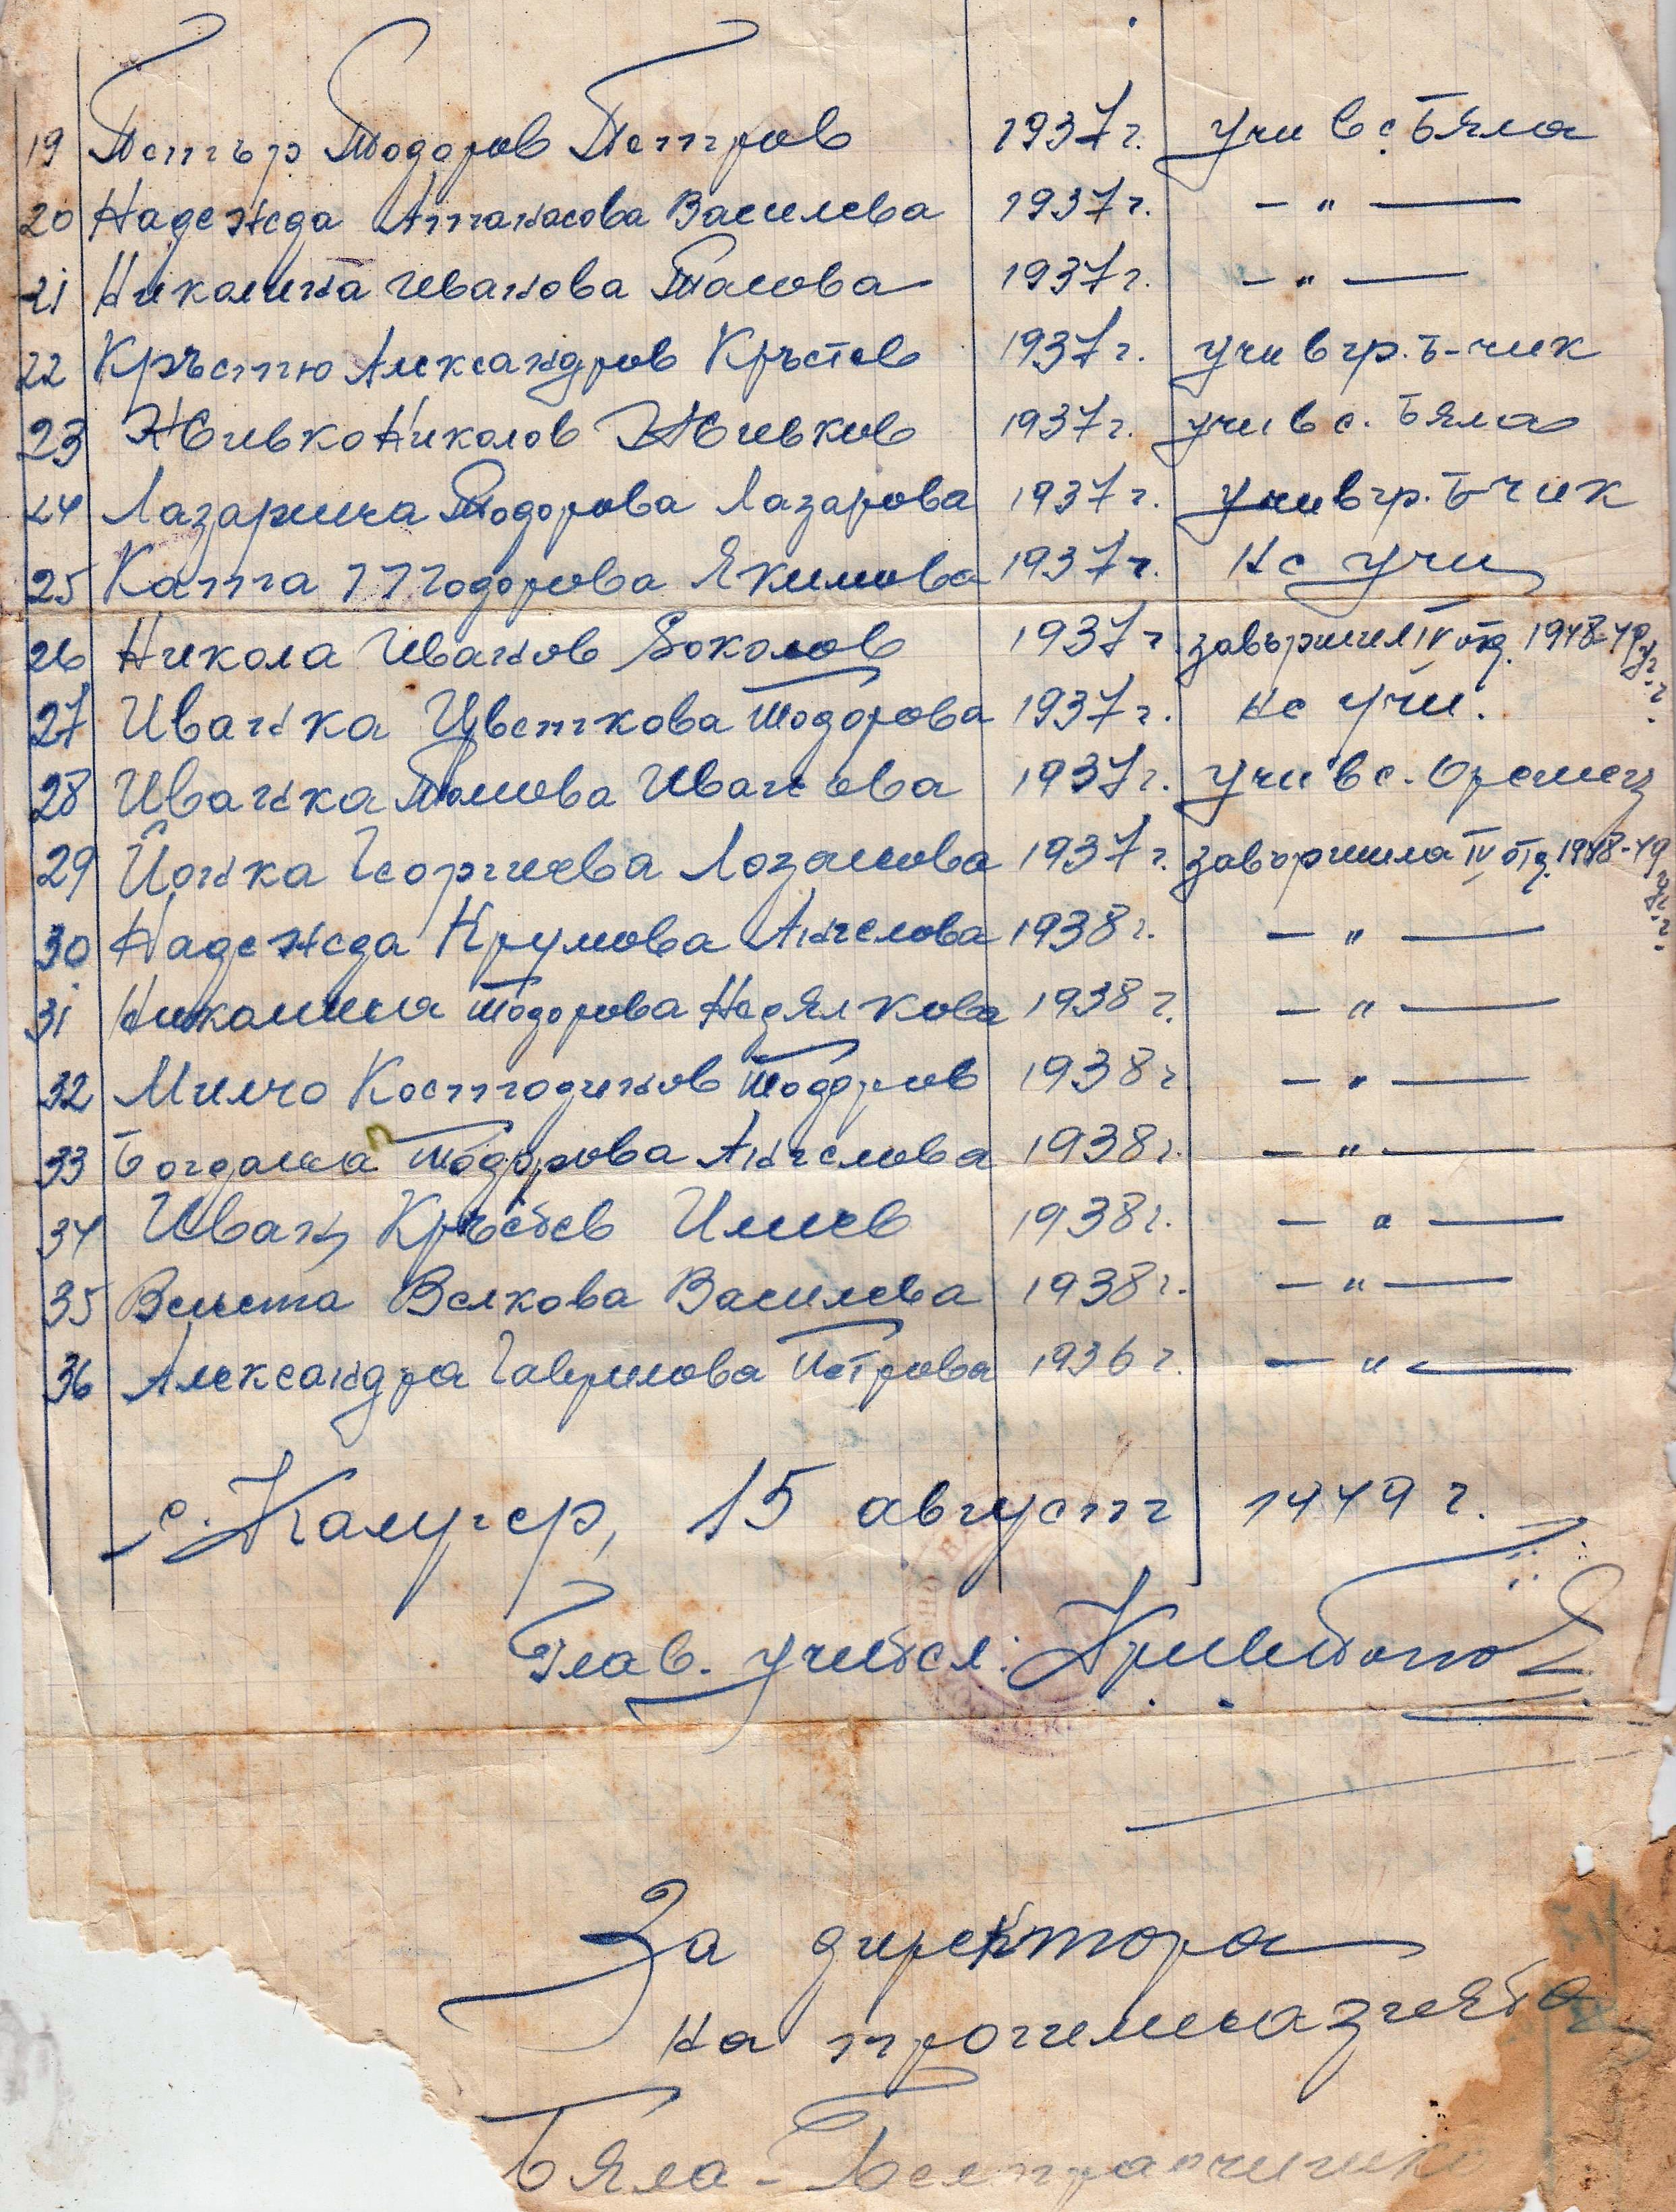 19 Петър Тодоров Петров 1937 г. учи в с. Бяла
20 Надежда Атанасова Василева 1937 г. — " —
21 Николина Иванова Танова 1937 г. — " —
22 Кръстю Александров Кръстев 1937 г. учи в гр. Б-чик
23 Живко Николов Живков 1937 г. учи в с. Бяла
24 Лазарина Тодорова Лазарова 1937 г. учи в гр. Б-чик
25 Ката Тодорова Якимова 1937 г. не учи
26 Никола Иванов Соколов 1937 г. завършил IV отд. 1948-49 уч. г.
27 Иванка Цветкова Тодорова 1937 г. не учи.
28 Иванка Томова Иванова 1937 г. учи в с. Орешец
29 Йонка Георгиева Лозанова 1937 г. завършила IV отд. 1948-49 уч. г.
30 Надежда Крумова Ангелова 1938 г. — " —
31 Николина Тодорова Недялкова 1938 г. — " —
32 Милчо Костадинов Тодоров 1938 г. — " —
33 Богданка Тодорова Ангелова 1938 г. — " —
34 Иван Кръстев Илиев 1938 г. — " —
35 Венета Велкова Василева 1938 г. — " —
36 Александра Гаврилова Петрова 1936 г. — " —
с. Калугер, 15 август 1949 г.
Глав. учител:
За директора
на прогимназията
Бяла - Белоградчишко